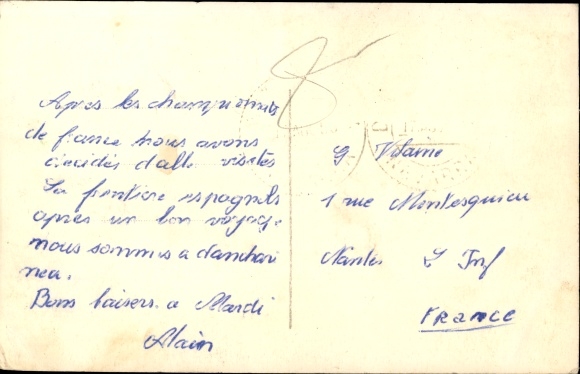 Apres les championnats
de france nous avons
decidés d'allé visités
La frontiere espagnols
apres un bon voyage
nous sommes a danchari
nea.
Bons baisers. a Mardi
Alain
G Vilaine
1 rue Montesquieu
Nantes L Inf
FRANCE